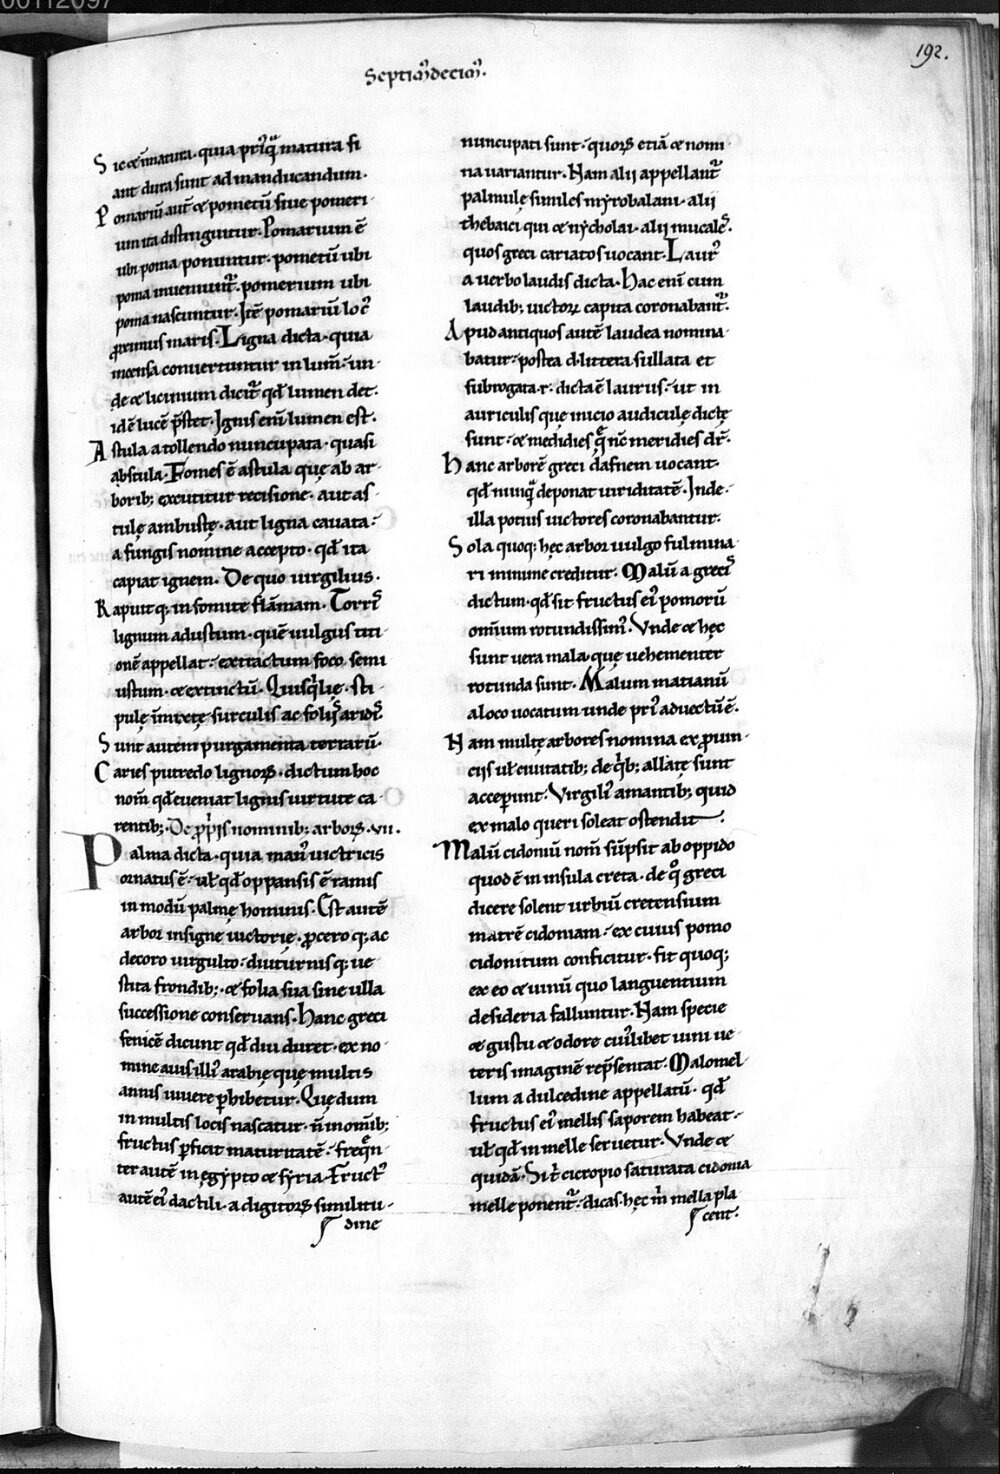 00112097
192.
Septim᷒decim᷒.
Sic ⁊ īmatura. quia pri᷒q̄ matura fi
ant dura sunt ad manducandum.
Pomariū aut̄ ⁊ pometū siue pomeri
um ita distinguitur. Pomarium ē
ubi poma ponuntur. pometū ubi
poma inueniunt᷒. pomerium ubi
poma nascuntur. Itē pomariū loc᷒
ꝓximus maris. Ligna dicta. quia
incensa conuertuntur in lum̄. un
de ⁊ licinium dicit᷒ qđ lumen det.
idē lucē p̄stet. Ignis enī lumen est.
Astula a tollendo nuncupata. quasi
abstula. Fomes ē astula quę ab ar
borib; excutitur recisione. aut as
tulę ambustę. aut ligna cauata.
a fungis nomine accepto. qđ ita
capiat ignem. De quo uirgilius.
Rapuitq; in fomite flāmam. Torri᷒
lignum adustum. quē uulgus titi
onē appellat. extractum foco semi
ustum. ⁊ extinctū. Quisq̇lię. sti
pulę īmixtę surculis ac folijs aridi᷒.
Sunt autem purgamenta terrarū.
Caries putredo lignoꝝ. dictum hoc
nom̄ qđ eueniat lignis uirtute ca
rentib;. De ꝓprijs nominib; arboꝝ. vii.
Palma dicta. quia man᷒ uictricis
ornatus ē. uł qđ oppansis ē ramis
in modū palmę hominis. Est autē
arbor insigne uictorię. ꝓceroq; ac
decoro uirgulto. diuturnisq; ue
stita frondib;. ⁊ folia sua sine ulla
successione conseruans. Hanc greci
fenicē dicunt qđ diu duret. ex no
mine auis illi᷒ arabię quę multis
annis uiuere ꝑhibetur. Quędum
in multis locis nascatur. ñ in om̄ib;
fructus ꝑficit maturitatē. freq̄n
ter autē in ęgypto ⁊ syria. Fruct᷒
autē ei᷒ dactili. a digitoꝝ similitu
dine
nuncupati sunt. quoꝝ etiā ⁊ nomi
na uariantur. Nam alii appellant᷒
palmulę similes myrobalani. alii
thebaici qui ⁊ nycholai. alii nucale᷒.
quos greci cariatos uocant. Laur᷒
a uerbo laudis dicta. Hac enī cum
laudib; uictoꝝ capita coronabant᷒.
Apud antiquos autē laudea nomina
batur. postea d. littera sullata et
subrogata. r. dicta ē laurus. ut in
auriculis quę inicio audiculę dictę
sunt. ⁊ medidies q̄ nc̄ meridies dr̄.
Hanc arborē greci dafnem uocant.
qđ nunq̄ deponat uiriditatē. Inde
illa potius uictores coronabantur.
Sola quoq; hęc arbor uulgo fulmina
ri minime creditur. Malū a greci᷒
dictum. qđ sit fructus ei᷒ pomorū
omīum rotundissim᷒. Vnde ⁊ hęc
sunt uera mala. quę uehementer
rotunda sunt. Malum matianū
a loco uocatum unde pri᷒ aduectū ē.
Nam multę arbores nomina ex ꝓuin
cijs uł ciuitatib; de q̇b; allatę sunt
acceperunt. Virgili᷒ amantib; quid
ex malo queri soleat ostendit.
Malū cidoniū nom̄ sūpsit ab oppido
quod ē in insula creta. de q̊ greci
dicere solent urbiū cretensium
matrē cidoniam. ex cuius pomo
cidonitum conficitur. fit quoq;
ex eo ⁊ uinū quo languentium
desideria falluntur. Nam specie
⁊ gustu ⁊ odore cui᷒libet uini ue
teris imaginē rep̄sentat. Malomel
lum a dulcedine appellatū. qđ
fructus ei᷒ mellis saporem habeat.
uł qđ in melle seruetur. Vnde ⁊
quidā. Si t᷒ cicropio saturata cidonia
melle ponent᷒. dicas. hęc m̄ mella pla
cent.